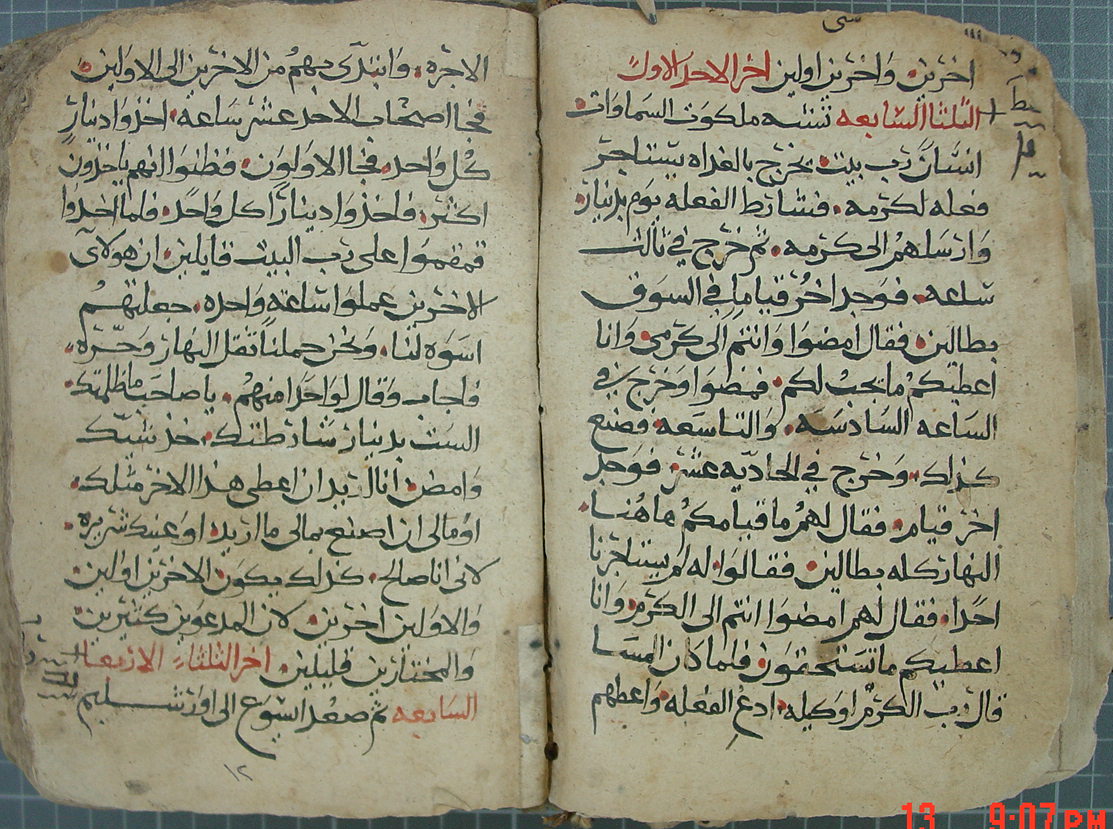 سى
اخرين واخرين اولين اخر الاحد الاول
الثلثا السابعه تشبه ملكوت السماوات
انسان رب بيت يخرج بالغداه يستاجر
فعله لكرمه فشارط الفعله يوم بدينار
وارسلهم الى كرمه ثم خرج في ثالث
ساعه فوجد اخر قياما في السوق
بطالين فقال امضوا وانتم الى كرمى وانا
اعطيكم ما يجب لكم فمضوا وخرج في
الساعه السادسه والتاسعه فصنع
كذلك وخرج في الحاديه عشر فوجد
اخر قيام فقال لهم ما قيامكم هاهنا
النهار كله بطالين فقالوا له لم يستاجرنا
احدا فقال لهم امضوا انتم الى الكرم وانا
اعطيكم ما تستحقون فلما كان المسا
قال رب الكرم لوكيله ادع الفعله واعطهم
الاجره وابتدى بهم من الاخرين الى الاولين
فجا اصحاب الاحد عشر ساعه اخذوا دينار
كل واحد فجا الاولون فظنوا انهم ياخذون
اكثر فاخذوا دينارا كل واحد فلما اخذوا
تمقموا على رب البيت قايلين ان هولاى
الاخرين عملوا ساعه واحده جعلتهم
اسوه لنا ونحن حملنا ثقل النهار وحره
فاجاب وقال لواحد منهم يا صاحب ما ظلمتك
الست بدينار شارطتك خذ شيك
وامض انا اريد ان اعطى هذا الاخر مثلك
اوما لى ان اصنع بمالى ما اريد او عينك شريره
لانى انا صالح كذلك يكون الاخرين اولين
والاولين اخرين لان المدعوين كثيرين
والمختارين قليلين اخر الثلثاء الاربعا
السابعه ثم صعد ايسوع الى اورشليم
١٢
13 9:07 PM